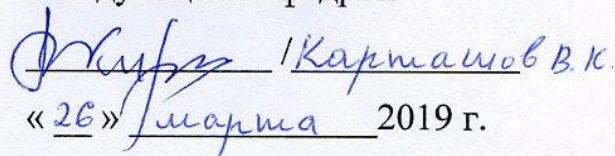 /Карташов В. К.
«26» марта 2019 г.